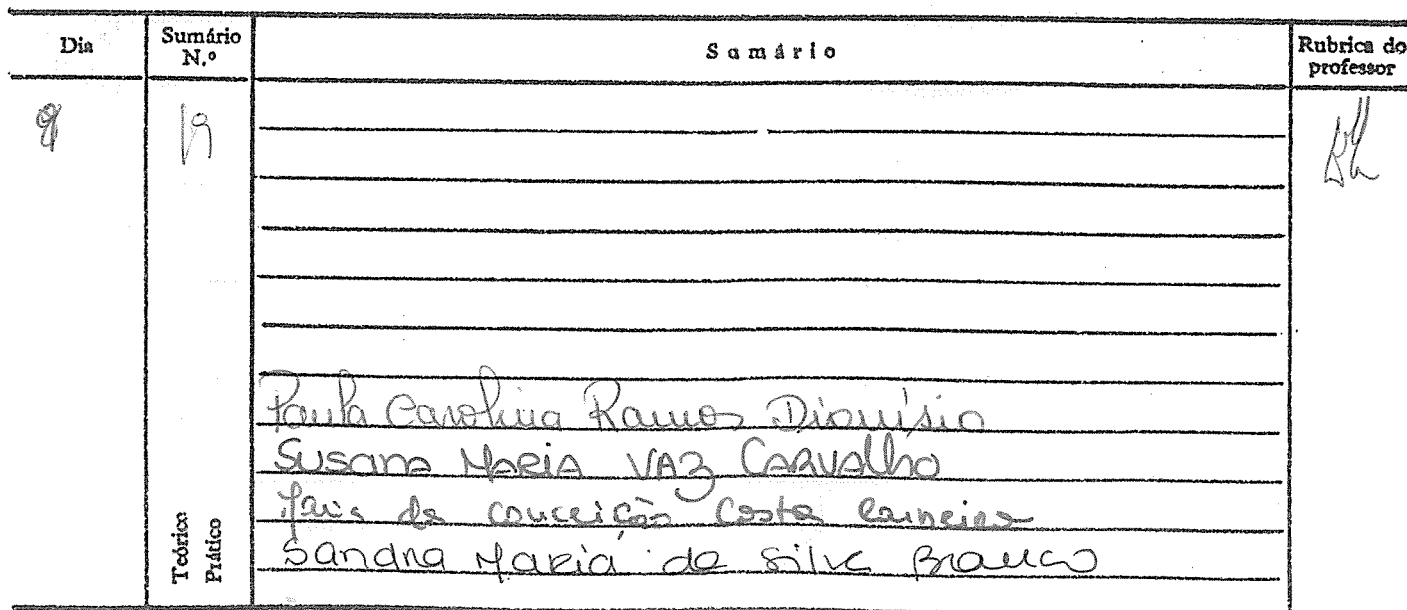 Dia Sumário N.º Sumário Rubrica do professor
9 19
Paula Carolina Ramos Dionísio
Susana Maria Vaz Carvalho
Maria da Conceição Costa Carneiro
Sandra Maria da Silva Branco
Teórico
Prático